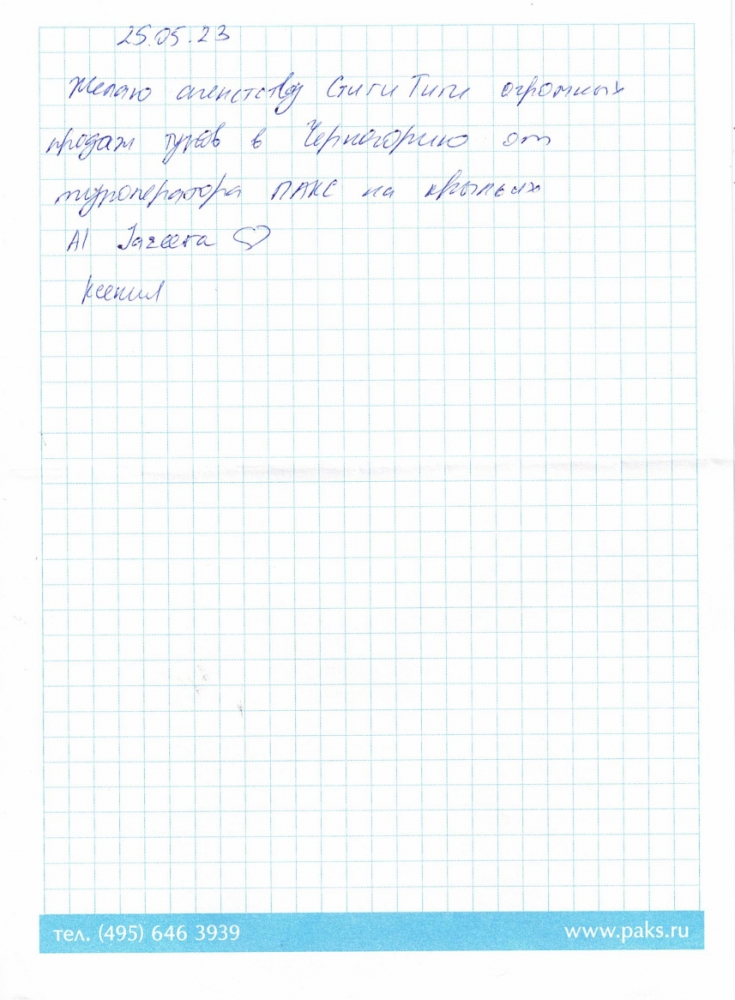 25.05.23
Желаю агентству Сити Тити огромных
продаж туров в Черногорию от
туроператора ПАКС на крыльях
Al ♡
Ксения
тел. (495) 646 3939 www.paks.ru